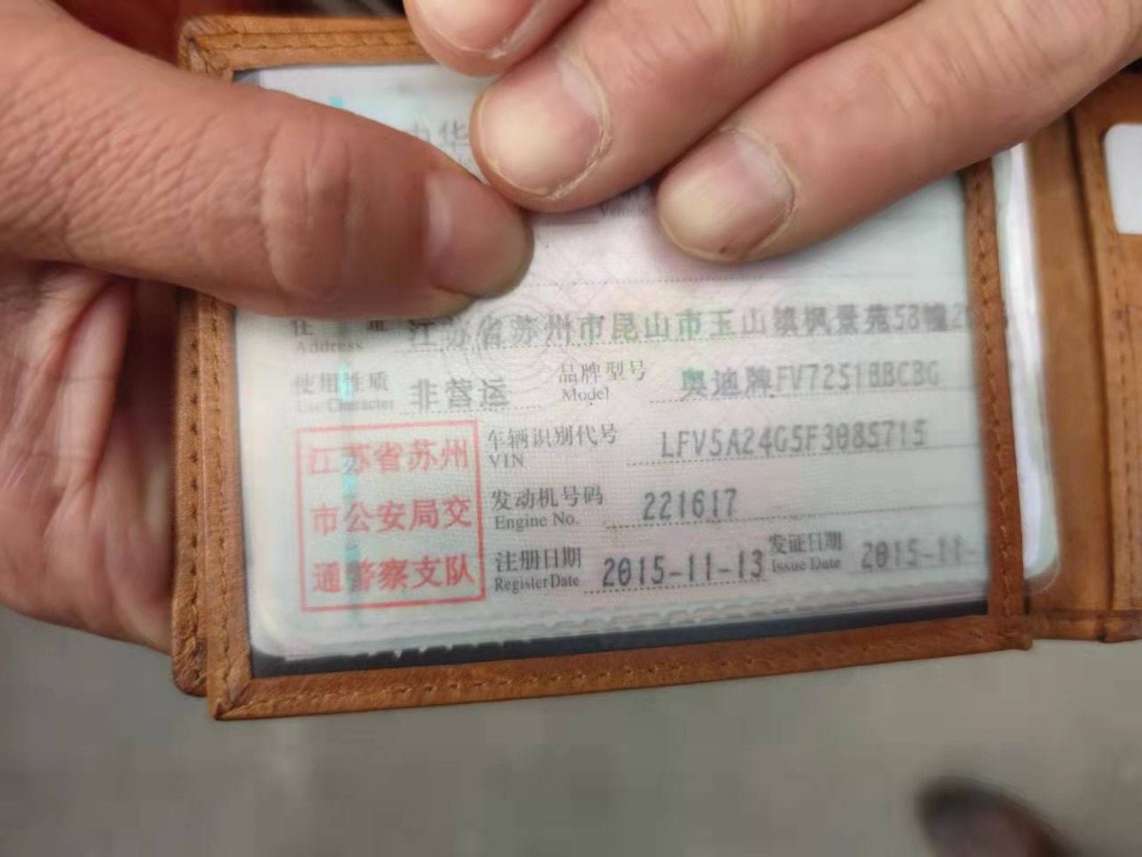 中华
住 址 Address 江苏省苏州市昆山市玉山镇枫景苑58幢2
使用性质 Use Character 非营运 品牌型号 Model 奥迪牌FV7251BBCBG
车辆识别代号 VIN LFV5A24G5F3085715
发动机号码 Engine No. 221617
注册日期 Register Date 2015-11-13 发证日期 Issue Date 2015-11-
江苏省苏州
市公安局交
通警察支队